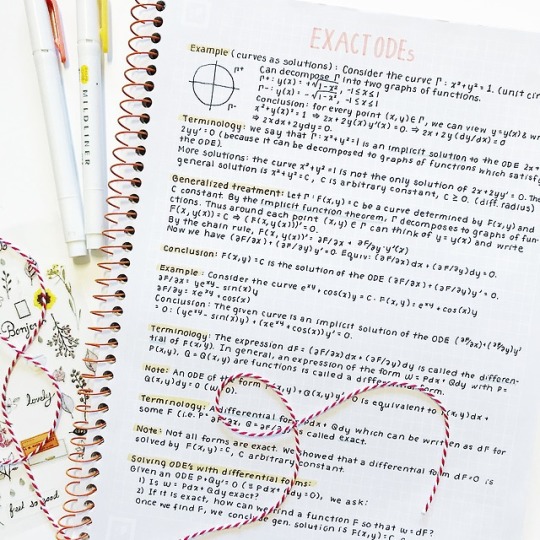 EXACT ODEs
Example (curves as solutions): Consider the curve Γ: x²+y²=1. (unit cir
Can decompose Γ into two graphs of functions.
Γ+: y(x) = +√1-x², -1≤x≤1
Γ-: y(x) = -√1-x², -1≤x≤1
Conclusion: for every point (x,y)∈Γ, we can view y=y(x) & wr
x²+y(x)²=1 ⇒ 2x+2y(x)y'(x)=0. ⇒ 2x+2y(dy/dx)=0
⇒ 2xdx+2ydy=0.
Terminology: we say that Γ: x²+y²=1 is an implicit solution to the ODE 2x+
2yy'=0 (because it can be decomposed to graphs of functions which satisfy
the ODE).
More solutions: the curve x²+y²=1 is not the only solution of 2x+2yy'=0. The
general solution is x²+y²=C, C is arbitrary constant, C≥0. (diff. radius)
Generalized treatment: Let Γ: F(x,y)=C be a curve determined by F(x,y) and
C constant. By the implicit function theorem, Γ decomposes to graphs of fun-
ctions. Thus around each point (x,y)∈Γ can think of y=y(x) and write
F(x,y(x))=C ⇒ (F(x,y(x)))'=0.
By the chain rule, F(x,y(x))'= ∂F/∂x + ∂F/∂y·y'(x)
Now we have (∂F/∂x)+(∂F/∂y)y'=0. Equiv: (∂F/∂x)dx+(∂F/∂y)dy=0.
Conclusion: F(x,y)=C is the solution of the ODE (∂F/∂x)+(∂F/∂y)y'=0.
Example: Consider the curve eˣʸ+cos(x)y=C. F(x,y)=eˣʸ+cos(x)y
∂F/∂x= yeˣʸ-sin(x)y
∂F/∂y= xeˣʸ+cos(x)
Conclusion: The given curve is an implicit solution of the ODE (∂F/∂x)+(∂F/∂y)y'
=0: (yeˣʸ-sin(x)y)+(xeˣʸ+cos(x))y'=0.
Terminology: The expression dF=(∂F/∂x)dx+(∂F/∂y)dy is called the differen-
tial of F(x,y). In general, an expression of the form ω=Pdx+Qdy with P=
P(x,y), Q=Q(x,y) are functions is called a differential form.
Note: An ODE of the form +Q(x,y)y'=0 is equivalent to P(x,y)dx+
Q(x,y)dy=0
Terminology: A differential form Pdx+Qdy which can be written as dF for
some F (i.e. is called exact.
Note: Not all forms are exact. We showed that a differential form dF=0 is
solved by F(x,y)=C, C arbitrary constant.
Solving ODE's with differential forms:
Given an ODE P+Qy'=0 we ask:
1) Is ω=Pdx+Qdy exact?
2) If it is exact, how can we find a function F so that ω=dF?
Once we find F, we conclude gen. solution is F(x,y)=C
MILDLINER
Bonjour
lovely
feel so good